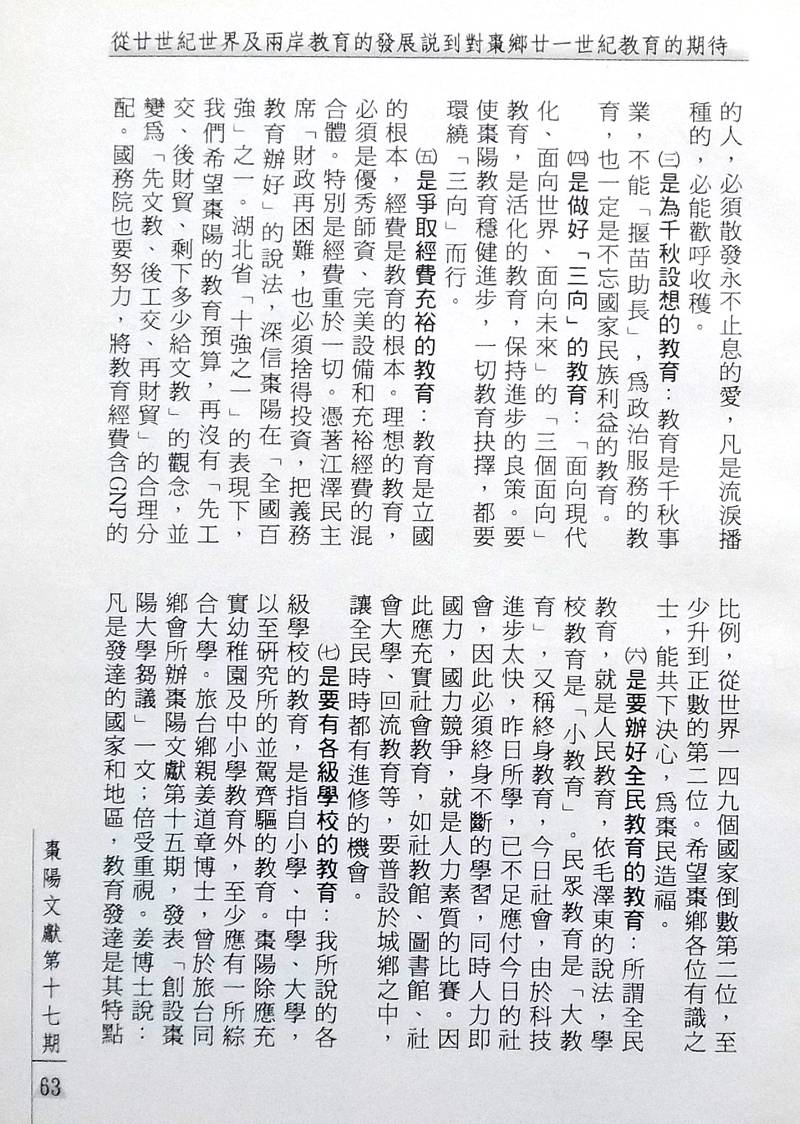 從廿世紀世界及兩岸教育的發展説到對棗鄉廿一世紀教育的期待
的人，必須散發永不止息的愛，凡是流淚播
種的，必能歡呼收穫。
㈢是為千秋設想的教育：教育是千秋事
業，不能「揠苗助長」，爲政治服務的教
育，也一定是不忘國家民族利益的教育。
㈣是做好「三向」的教育：「面向現代
化、面向世界、面向未來」的「三個面向」
教育，是活化的教育，保持進步的良策。要
使棗陽教育穩健進步，一切教育抉擇，都要
環繞「三向」而行。
㈤是爭取經費充裕的教育：教育是立國
的根本，經費是教育的根本。理想的教育，
必須是優秀師資、完美設備和充裕經費的混
合體。特別是經費重於一切。憑著江澤民主
席「財政再困難，也必須捨得投資，把義務
教育辦好」的說法，深信棗陽在「全國百
強」之一。湖北省「十強之一」的表現下，
我們希望棗陽的教育預算，再沒有「先工
交、後財貿、剩下多少給文教」的觀念，並
變爲「先文教、後工交、再財貿」的合理分
配。國務院也要努力，將教育經費含GNP的
比例，從世界一四九個國家倒數第二位，至
少升到正數的第二位。希望棗鄉各位有識之
士，能共下決心，爲棗民造福。
㈥是要辦好全民教育的教育：所謂全民
教育，就是人民教育，依毛澤東的說法，學
校教育是「小教育」。民眾教育是「大教
育」，又稱終身教育，今日社會，由於科技
進步太快，昨日所學，已不足應付今日的社
會，因此必須終身不斷的學習，同時人力即
國力，國力競爭，就是人力素質的比賽。因
此應充實社會教育，如社教館、圖書館、社
會大學、回流教育等，要普設於城鄉之中，
讓全民時時都有進修的機會。
㈦是要有各級學校的教育：我所說的各
級學校的教育，是指自小學、中學、大學，
以至研究所的並駕齊驅的教育。棗陽除應充
實幼稚園及中小學教育外，至少應有一所綜
合大學。旅台鄉親姜道章博士，曾於旅台同
鄉會所辦棗陽文獻第十五期，發表「創設棗
陽大學芻議」一文；倍受重視。姜博士說：
凡是發達的國家和地區，教育發達是其特點
棗陽文獻第十七期
63